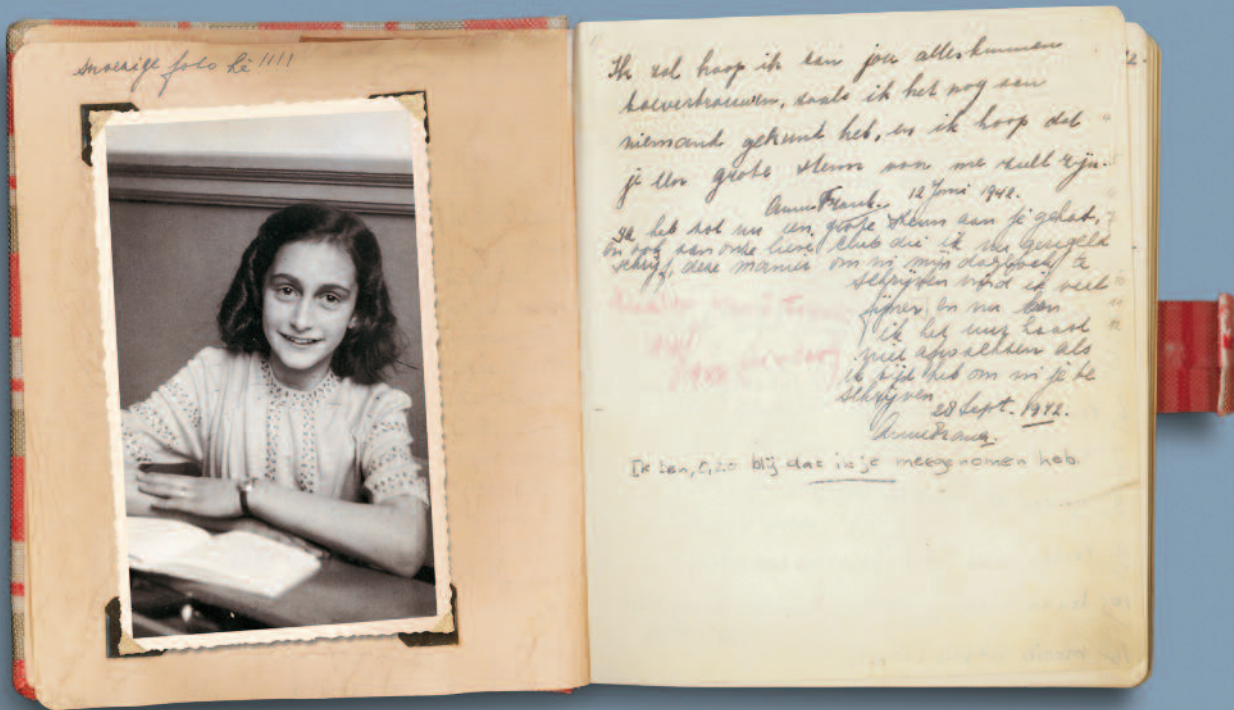 snoezige foto hè !!!!
Ik zal hoop ik aan jou alles kunnen
toevertrouwen, zoals ik het nog aan
niemand gekund heb, en ik hoop dat
je een grote steun van me zult zijn.
Anne Frank. 12 Juni 1942.
Ik heb tot nu een grote steun aan je gehad,
en ook aan onze lieve club die ik nu geregeld
schrijf, deze manier om in mijn dagboek te
schrijven vind ik veel
fijner en nu kan
ik het uur haast
niet afwachten als
ik tijd heb om in je te
schrijven
28 Sept. 1942.
Anne Frank.
Ik ben, blij dat ik je meegenomen heb.